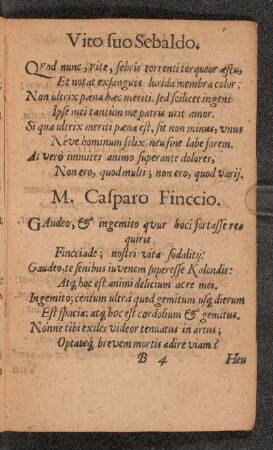 Vito suo Sebaldo.
QVod nunc, vite, febris torrenti torqueor æstu,
Et notat exsanguis lurida membra color:
Non ultrix pæna hæc meriti. sed scilicet ingens
Ipse mei tantùm me patris urit amor.
Si qua ultrix meriti pæna est, sit non minus, vnus
Néve hominum felix, neu sine labe forem.
At verò immites animo superante dolores,
Non ero, quod multi; non ero, quod varij.
M. Casparo Finccio.
GAudeo, & ingemito qvur hoc fortasse re⸗
quiris
Fincciade; nostri vita sodalitij:
Gaudeo, te senibus iuvenem superesse Kalendis:
Atq́; hoc est animi delicium acre mei.
Ingemito; centum ultra quod gemitum usq́; dierum
Est spacia: atq́; hoc est cordolium & gemitus.
Nónne tibi exiles videor tenuatus in artus;
Optateq́; brevem mortis adire viam?
B 4
Heu